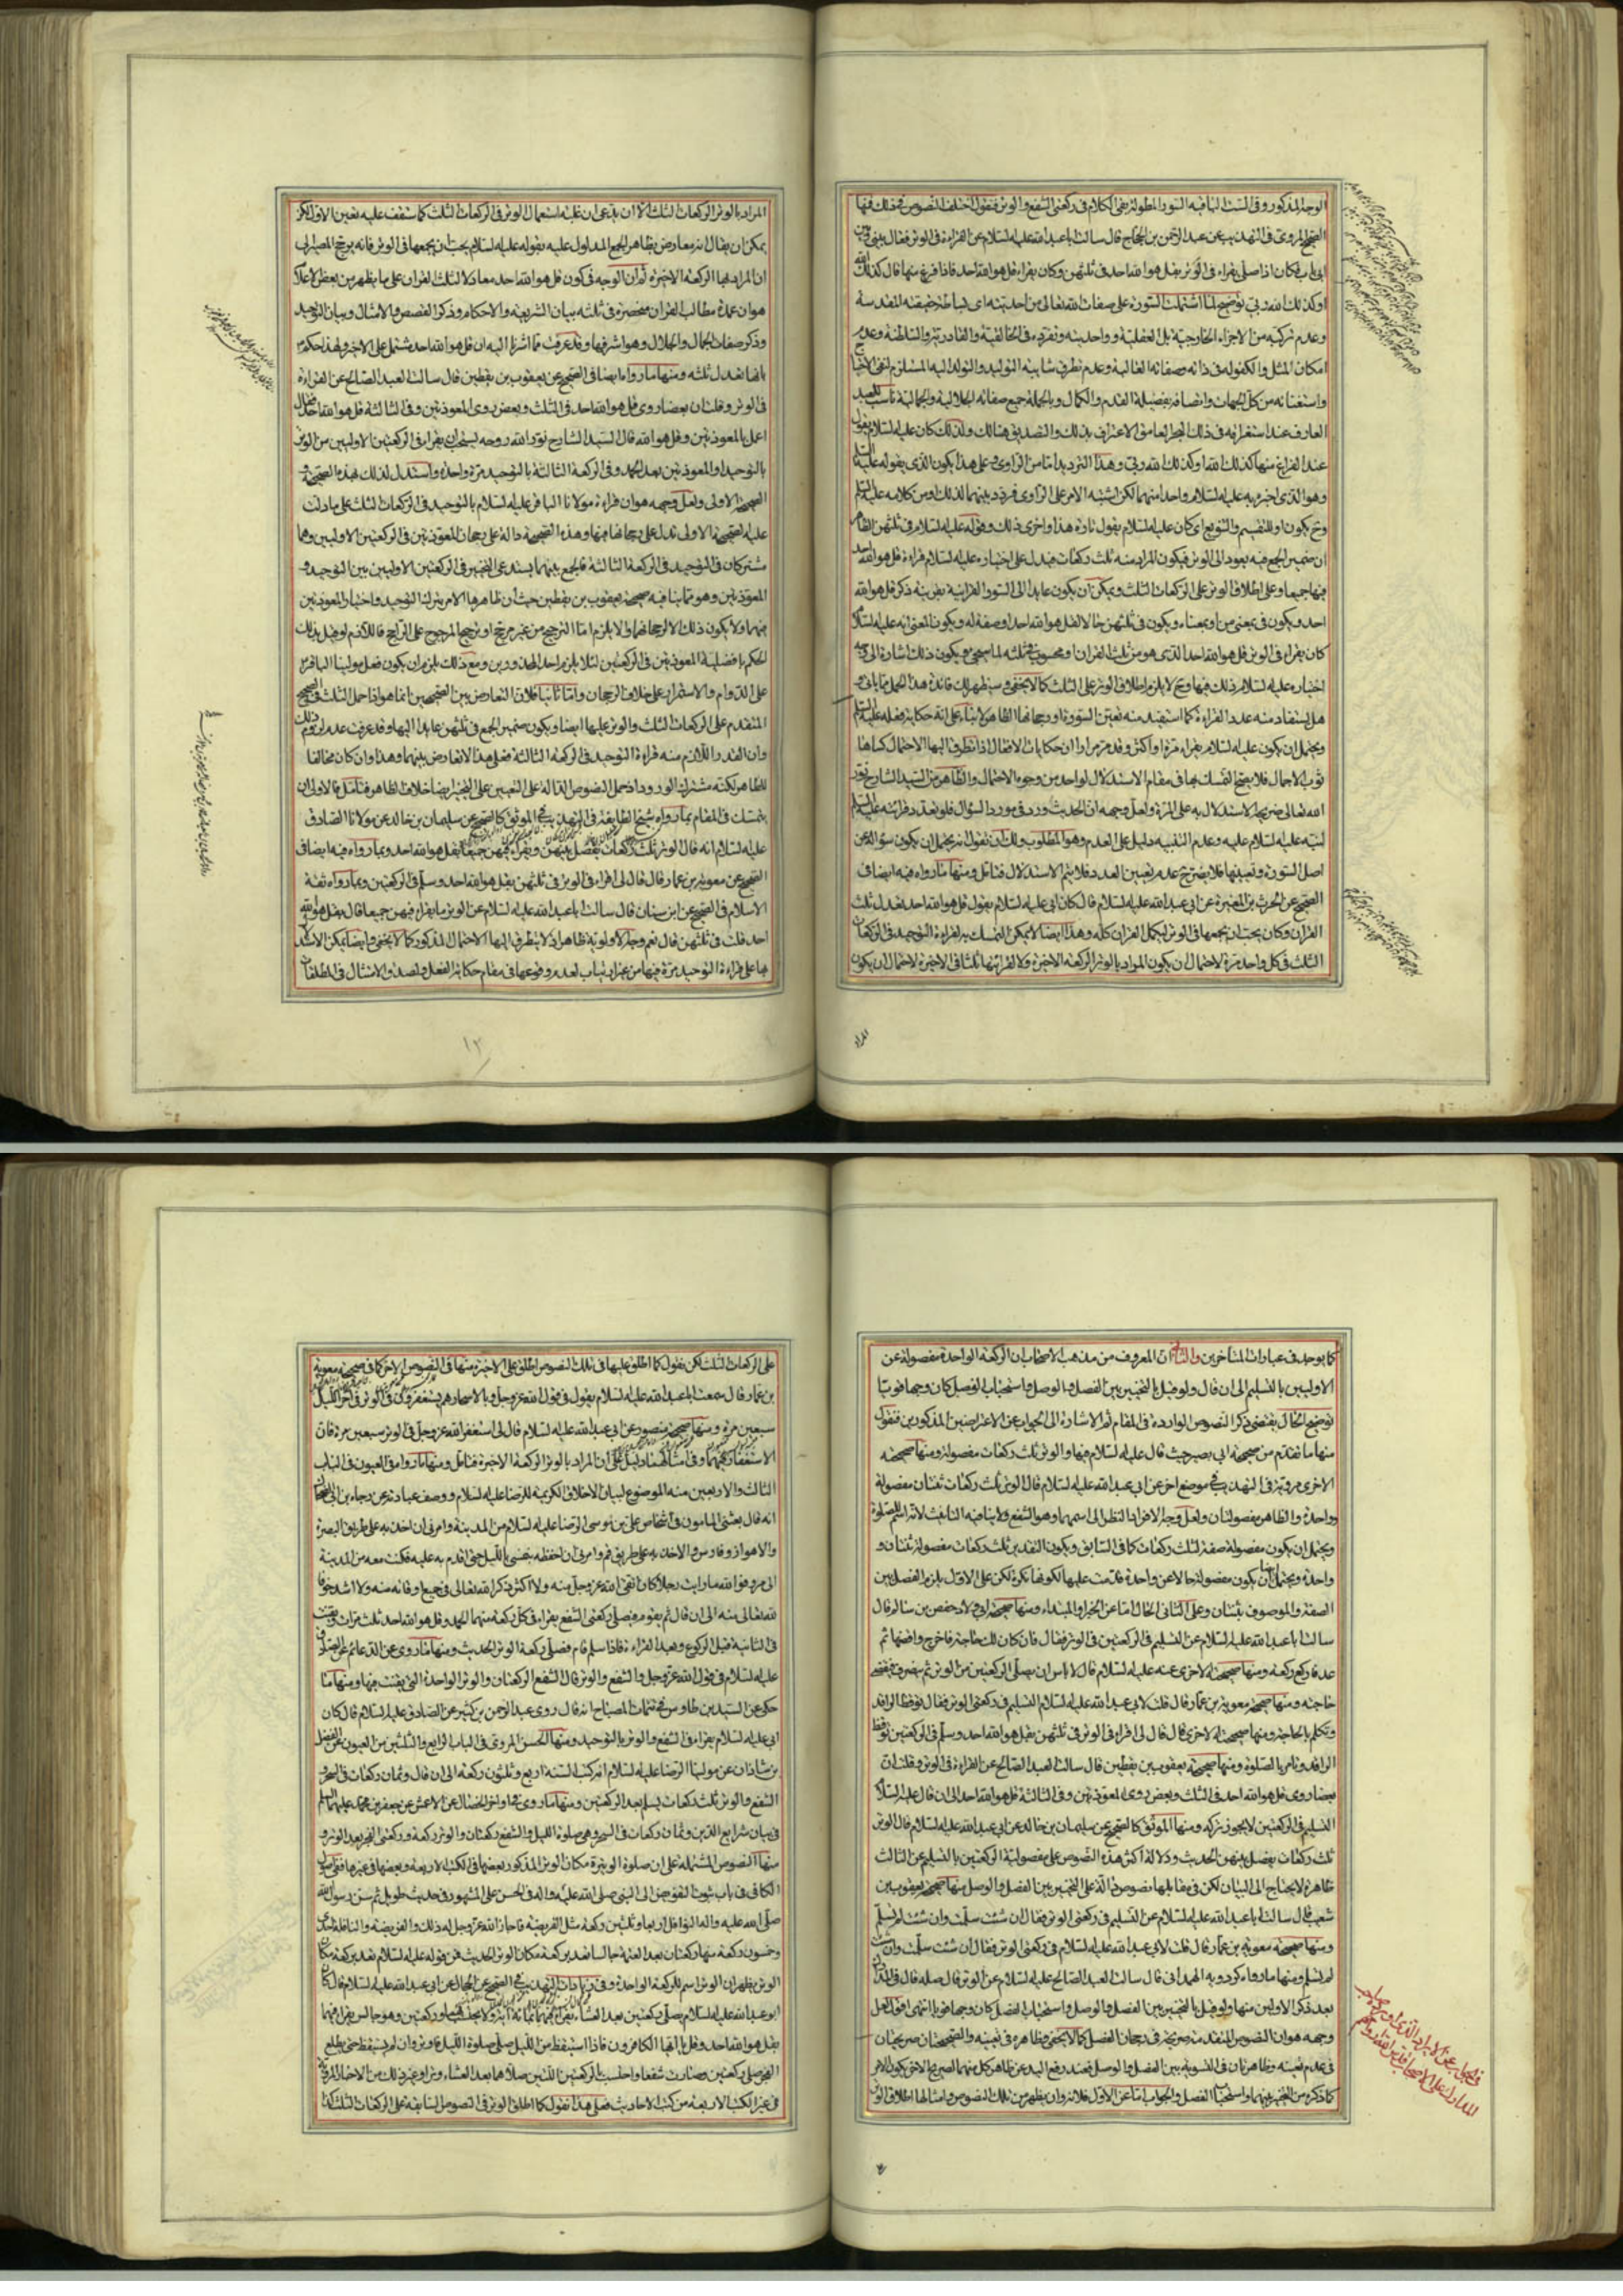 الوجه المذكور وفى الست الباقيه السور المطولة بقى الكلام فى ركعتى الشفع والوتر فنقول اختلف النصوص فى ذلك فمنها
الصحيح المروى فى التهذيب عن عبد الرحمن بن الحجاج قال سالت ابا عبد الله عليه السلام عن القراءة فى الوتر فقال بينى وبين
ابى باب فكان اذا صلى يقراء فى الوتر بقل هو الله احد فى ثلثهن وكان يقراء قل هو الله احد فاذا فرغ منها قال كذلك الله
او كذلك الله ربى توضيح لما اشتملت السورة على صفات الله تعالى من احديته اى بساطة حقيقته المقدسة
وعدم تركبه من الاجزاء الخارجية بل العقلية و واحديته وتفرده فى الخالقية والقادرية والسلطنة وعدم
امكان المثل والكفو له فى ذاته وصفاته الغالبة وعدم تطرق شايبة التوليد والتولد اليه المستلزم لنفى الاحتياج
واستغنائه من كل الجهات واتصافه بفضيلة القدم والكمال وبالجملة جميع صفاته الجلالية والجمالية ناسب للعبد
العارف عند استغراقه فى ذلك البحر العامق الاعتراف بذلك والتصديق هنالك ولذلك كان عليه السلام يقول
عند الفراغ منها كذلك الله او كذلك الله ربى وهذا الترديد اما من الراوى وعلى هذا يكون الذى يقوله عليه السلم
وهو الذى اخبر به عليه السلام واحدا منهما لكن اشتبه الامر على الراوى فردد بينهما لذلك او من كلامه عليه السلم
وح يكون او للتقسيم والتنويع اى كان عليه السلام يقول تارة هذا واخرى ذلك وقوله عليه السلام فى ثلثهن الظاهر
ان ضمير الجمع فيه يعود الى الوتر فيكون المراد منه ثلث ركعات فيدل على اختياره عليه السلام قراءة قل هو الله احد
فيها جميعا وعلى اطلاق الوتر على الركعات الثلث ويمكن ان يكون عايدا الى السور القرانية بقرينة ذكر قل هو الله
احد ويكون فى بمعنى من او بمعناه ويكون فى ثلثهن حالا لقل هو الله احد او صفة له ويكون المعنى انه عليه السلام
كان يقراء فى الوتر قل هو الله احد الذى هو من ثلث القران او محسوب من ثلثه لما سيجئ ويكون ذلك اشارة الى وجه
اختياره عليه السلام ذلك فيها وح لا يلزم اطلاق الوتر على الثلث كما لا يخفى وسيظهر لك فائدة هذا الحمل مما ياتى و
هل يستفاد منه عدد القراءة كما استفيد منه تعيين السورة او رجحانها الظاهر لا بناء على انه حكاية فعله عليه السلم
ويحتمل ان يكون عليه السلام يقراء مرة او اكثر وقد مر مرارا ان حكايات الافعال اذا تطرق اليها الاحتمال كساها
ثوب الاجمال فلا يصح التمسك بها فى مقام الاستدلال لواحد من وجوه الاحتمال والظاهر من السيد الشارح نور
الله تعالى ضريحه الاستدلال به على المرة ولعل وجهه ان الحديث ورد فى مورد السؤال فلو تعدد قرائته عليه السلم
لنبه عليه السلام عليه وعدم التنبيه دليل على العدم وهو المطلوب ولك ان تقول انه يحتمل ان يكون سؤاله عن
اصل السورة وتعيينها فلا يضر ح عدم تعيين العدد فلا يتم الاستدلال فتامل ومنها ما رواه فيه ايضا فى
الصحيح عن الحرث بن المغيرة عن ابى عبد الله عليه السلام قال كان ابى عليه السلام يقول قل هو الله احد تعدل ثلث
القران وكان يحب ان يجمعها فى الوتر ليكمل القران كله وهذا ايضا لا يمكن التمسك به لقراءة التوحيد فى الركعات
الثلث فى كل واحد مرة لاحتمال ان يكون المراد بالوتر الركعة الاخيرة ولا لقرائتها ثلثا فى الاخيرة لاحتمال ان يكون
المراد
المراد بالوتر الركعات الثلث الا ان يدعى ان غلبة استعمال الوتر فى الركعات الثلث كما ستقف عليه تعين الاول لكن
يمكن ان يقال انه معارض بظاهر الجمع المدلول عليه بقوله عليه السلام يحب ان يجمعها فى الوتر فانه يرجح المصير الى
ان المراد بها الركعة الاخيرة ثم ان الوجه فى كون قل هو الله احد معادلا لثلث القران على ما يظهر من بعض الاعلام
هو ان عمدة مطالب القران منحصرة فى ثلثه بيان الشريعة والاحكام وذكر القصص والامثال وبيان التوحيد
وذكر صفات الجمال والجلال وهو اشرفها وقد عرفت مما اشرنا اليه ان قل هو الله احد يشتمل على الاخير ولهذا حكم
بانها تعدل ثلثه ومنها ما رواه ايضا فى الصحيح عن يعقوب بن يقطين قال سالت العبد الصالح عن القراءة
فى الوتر وقلت ان بعضا روى قل هو الله احد فى الثلث وبعض روى المعوذتين وفى الثالثة قل هو الله احد فقال
اعمل بالمعوذتين وقل هو الله قال السيد الشارح نور الله روحه يستحب ان يقرا فى الركعتين الاوليين من الوتر
بالتوحيد او المعوذتين بعد الحمد وفى الركعة الثالثة بالتوحيد مرة واحدة واستدل لذلك بهذه الصحيحة و
الصحيحة الاولى ولعل وجهه هو ان قراءة مولانا الباقر عليه السلام بالتوحيد فى الركعات الثلث على ما دلت
عليه الصحيحة الاولى تدل على رجحانها فيها وهذه الصحيحة دالة على رجحان المعوذتين فى الركعتين الاوليين وهما
مشتركان فى التوحيد فى الركعة الثالثة فالجمع بينهما يستدعى التخيير فى الركعتين الاوليين بين التوحيد و
المعوذتين وهو مما ينافيه صحيحة يعقوب بن يقطين حيث ان ظاهرها الامر بترك التوحيد واختيار المعوذتين
فيهما ولا يكون ذلك الا لرجحانهما والا يلزم اما الترجيح من غير مرجح او ترجيح المرجوح على الراجح فاللازم لو قيل بذلك
الحكم بافضلية المعوذتين فى الركعتين لئلا يلزم احد المحذورين ومع ذلك يلزم ان يكون فعل مولينا الباقر
على الدوام والاستمرار على خلاف الرجحان واما ثانيا فلان التعارض بين الصحيحين انما هو اذا حمل الثلث فى الصحيح
المتقدم على الركعات الثلث والوتر عليها ايضا ويكون ضمير الجمع فى ثلثهن عايدا اليها وقد عرفت عدم لزوم ذلك
وان القدر اللازم منه قراءة التوحيد فى الركعة الثالثة فعلى هذا لا تعارض بينهما وهذا وان كان مخالفا
للظاهر لكنه مشترك الورود اذ حمل النصوص الدالة على التعيين على التخيير ايضا خلاف الظاهر فتامل فالاولى ان
يتمسك فى المقام بما رواه شيخ الطايفة فى التهذيب فى الموثق كالصحيح عن سليمان بن خالد عن مولانا الصادق
عليه السلام انه قال الوتر ثلث ركعات يفصل بينهن ويقراء فيهن جميعا بقل هو الله احد وبما رواه فيه ايضا فى
الصحيح عن معوية بن عمار قال قال لى اقراء فى الوتر فى ثلثهن بقل هو الله احد وسلم فى الركعتين وبما رواه ثقة
الاسلام فى الصحيح عن ابن سنان قال سالت ابا عبد الله عليه السلام عن الوتر ما يقراء فيهن جميعا قال بقل هو الله
احد قلت فى ثلثهن قال نعم وجه الاولوية ظاهر اذ لا يتطرق اليها الاحتمال المذكور كما لا يخفى وايضا يمكن الاستدلال
بها على قراءة التوحيد مرة فيها من غير ارتياب لعدم وقوعها فى مقام حكاية الفعل وصدق الامتثال فى المطلقات
١٢
كما يوجد فى عبارات المتاخرين والثانى ان المعروف من مذهب الاصحاب ان الركعة الواحدة مفصولة عن
الاوليين بالتسليم الى ان قال ولو قيل بالتخيير بين الفصل والوصل واستحباب الفصل كان وجها قويا
توضيح الحال يقتضى ذكر النصوص الواردة فى المقام ثم الاشارة الى الجواب عن الاعتراضين المذكورين فنقول
منها ما تقدم من صحيحة ابى بصير حيث قال عليه السلام فيها والوتر ثلث ركعات مفصولة ومنها صحيحته
الاخرى مروية فى التهذيب فى موضع اخر عن ابى عبد الله عليه السلام قال الوتر ثلث ركعات ثنتان مفصولة
وواحدة والظاهر مفصولتان ولعل وجه الافراد النظر الى اسمهما وهو الشفع ولا ينافيه التانيث لانه اسم للصلوة
ويحتمل ان يكون مفصولة صفة لثلث ركعات كما فى السابق ويكون التقدير ثلث ركعات مفصولة ثنتان و
واحدة ويحتمل ايضا ان يكون مفصولة حالا عن واحدة قدمت عليها لكونها نكرة لكن على الاول يلزم الفصل بين
الصفة والموصوف بثنتان وعلى الثانى الحال اما عن الخبر او المبتداء ومنها صحيحة ابى ولاد حفص بن سالم قال
سالت ابا عبد الله عليه السلام عن التسليم فى الركعتين فى الوتر فقال نعم فان كان لك حاجة فاخرج واقضها ثم
عد فاركع ركعة ومنها صحيحته الاخرى عنه عليه السلام قال لا باس ان يصلى الركعتين من الوتر ثم ينصرف فيقضى
حاجته ومنها صحيحة معوية بن عمار قال قلت لابى عبد الله عليه السلام التسليم فى ركعتى الوتر فقال توقظ الراقد
وتكلم بالحاجة ومنها صحيحته الاخرى قال قال لى اقراء فى الوتر فى ثلثهن بقل هو الله احد وسلم فى الركعتين توقظ
الراقد وتامر بالصلوة ومنها صحيحة يعقوب بن يقطين قال سالت العبد الصالح عن القراءة فى الوتر وقلت ان
بعضا روى قل هو الله احد فى الثلث وبعض روى المعوذتين وفى الثالثة قل هو الله احد الى ان قال عليه السلام
التسليم فى الركعتين لا يجوز تركه ومنها الموثق كالصحيح عن سليمان بن خالد عن ابى عبد الله عليه السلام قال الوتر
ثلث ركعات يفصل بينهن الحديث ودلالة اكثر هذه النصوص على مفصولية الركعتين بالتسليم عن الثالث
ظاهرة لا يحتاج الى البيان لكن فى مقابلها نصوص دالة على التخيير بين الفصل والوصل منها صحيحة يعقوب بن
شعيب قال سالت ابا عبد الله عليه السلام عن التسليم فى ركعتى الوتر فقال ان شئت سلمت وان شئت لم تسلم
ومنها صحيحة معوية بن عمار قال قلت لابى عبد الله عليه السلام فى ركعتى الوتر فقال ان شئت سلمت وان شئت
لم تسلم ومنها ما رواه كردويه الهمدانى قال سالت العبد الصالح عليه السلام عن الوتر قال صله قال فى المدارك
بعد ذكر الاولين منها ولو قيل بالتخيير بين الفصل والوصل واستحباب الفصل كان وجها قويا انتهى اقول لعل
وجهه هو ان النصوص المتقدمة صريحة فى رجحان الفصل كما لا يخفى وظاهرة فى تعينه والصحيحتان صريحتان
فى عدم تعينه وظاهرتان فى التسوية بين الفصل والوصل فبعد رفع اليد عن ظاهر كل منهما لصريح الاخر يكون الامر
كما ذكره من التخيير بينهما واستحباب الفصل والجواب اما عن الاول فلانه وان يظهر من تلك النصوص وامثالها اطلاق الوتر
على الركعات الثلث لكن نقول كما اطلق عليها فى تلك النصوص اطلق على الاخيرة منها فى النصوص الاخر كما فى صحيحة معوية
بن عمار قال سمعت ابا عبد الله عليه السلام يقول فى قول الله عز وجل وبالاسحار هم يستغفرون فى الوتر فى اخر الليل
سبعين مرة ومنها صحيحة منصور عن ابى عبد الله عليه السلام قال لى استغفر الله عز وجل فى الوتر سبعين مرة فان
الاستغفار فيهما وفى امثالهما دليل على ان المراد بالوتر الركعة الاخيرة فتامل ومنها ما رواه فى العيون فى الباب
الثالث والاربعين منه الموضوع لبيان الاخلاق الكريمة للرضا عليه السلام ووصف عبادته عن رجاء بن ابى الضحاك
انه قال بعثنى المامون فى اشخاص على بن موسى الرضا عليه السلام من المدينة وامرنى ان اخذ به على طريق البصرة
والاهواز وفارس ولا اخذ به على طريق قم وامرنى ان احفظه بنفسى بالليل حتى اقدم به عليه فكنت معه من المدينة
الى مرو فوالله ما رايت رجلا كان اتقى لله عز وجل منه ولا اكثر ذكرا لله تعالى فى جميع اوقاته منه ولا اشد خوفا
لله تعالى منه الى ان قال ثم يقوم فيصلى ركعتى الشفع يقراء فى كل ركعة منهما الحمد وقل هو الله احد ثلث مرات ويقنت
فى الثانية قبل الركوع وبعد القراءة فاذا سلم قام فصلى ركعة الوتر الحديث ومنها ما روى عن الدعائم عن الصادق
عليه السلام فى قول الله عز وجل والشفع والوتر قال الشفع الركعتان والوتر الواحدة التى يقنت فيها ومنها ما
حكى عن السيد بن طاوس فى تتمات المصباح انه قال روى عبد الرحمن بن كثير عن الصادق عليه السلام قال كان
ابى عليه السلام يقراء فى الشفع والوتر بالتوحيد ومنها الحسن المروى فى الباب الرابع والثلثين من العيون عن الفضل
بن شاذان عن مولينا الرضا عليه السلام انه كتب السنة اربع وثلثون ركعة الى ان قال وثمان ركعات فى السحر و
الشفع والوتر ثلث ركعات يسلم بعد الركعتين ومنها ما روى فى اواخر الخصال عن الاعمش عن جعفر بن محمد عليهما السلم
فى بيان شرايع الدين وثمان ركعات فى السحر وهى صلوة الليل والشفع ركعتان والوتر ركعة وركعتى الفجر بعد الوتر و
منها النصوص المشتملة على ان صلوة الوتيرة مكان الوتر المذكور بعضها فى الكتب الاربعة وبعضها فى غيرها ففى اصول
الكافى فى باب ثبوت التفويض الى النبى صلى الله عليه واله فى الحسن على المشهور فى حديث طويل ثم سن رسول الله
صلى الله عليه واله النوافل اربعا وثلثين ركعة مثلى الفريضة فاجاز الله عز وجل له ذلك والفريضة والنافلة احدى
وخمسون ركعة منها ركعتان بعد العتمة جالسا تعد بركعة مكان الوتر الحديث فمن قوله عليه السلام تعد بركعة مكان
الوتر يظهر ان الوتر اسم للركعة الواحدة وفى زيادات التهذيب فى الصحيح عن الحجال عن ابى عبد الله عليه السلام قال كان
ابو عبد الله عليه السلام يصلى ركعتين بعد العشاء يقراء فيهما بمائة اية ولا يحتسب بهما وركعتين وهو جالس يقرا فيهما
بقل هو الله احد وقل يا ايها الكافرون فاذا استيقظ من الليل صلى صلوة الليل واوتر وان لم يستيقظ حتى يطلع
الفجر صلى ركعتين وصارت شفعا واحتسب بالركعتين اللتين صلاهما بعد العشاء وترا وغير ذلك من الاخبار المروية
فى غير الكتب الاربعة من كتب الاحاديث فعلى هذا نقول كما اطلق الوتر فى النصوص السابقة على الركعات الثلث كذا